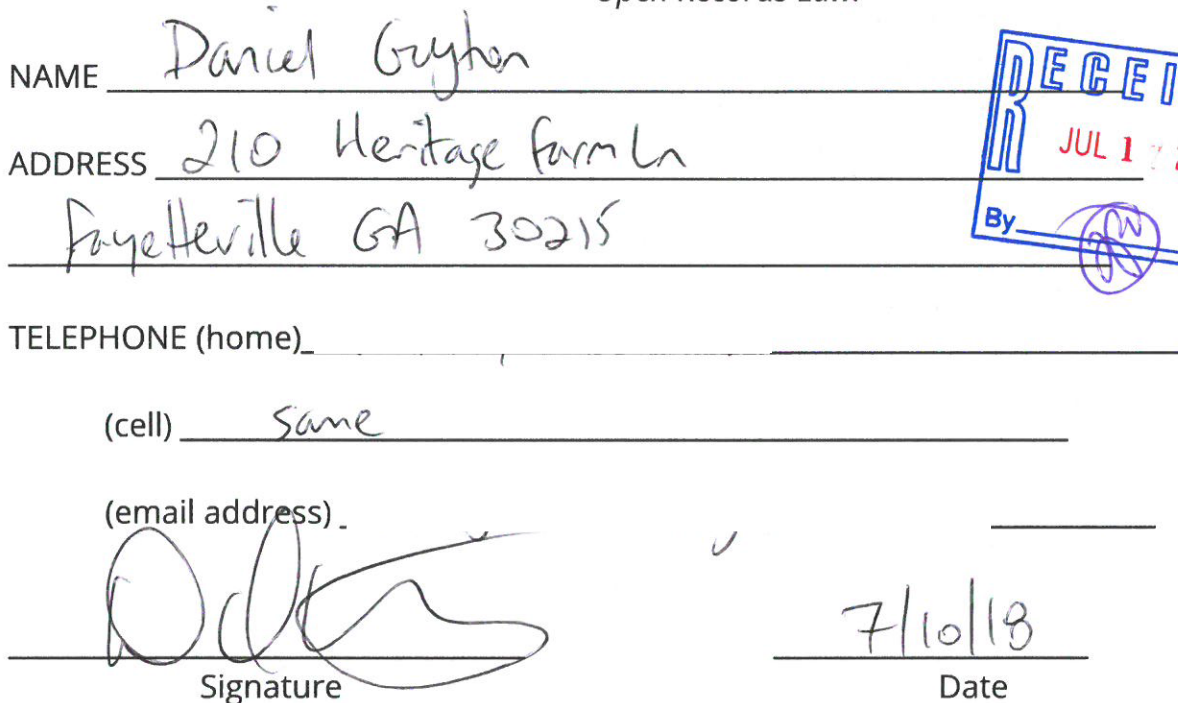 Open Records Law
NAME Daniel Guyton
ADDRESS 210 Heritage Farm Ln
Fayetteville GA 30215
RECEI
JUL 1
By
TELEPHONE (home)
(cell) same
(email address)
7/10/18
Signature Date